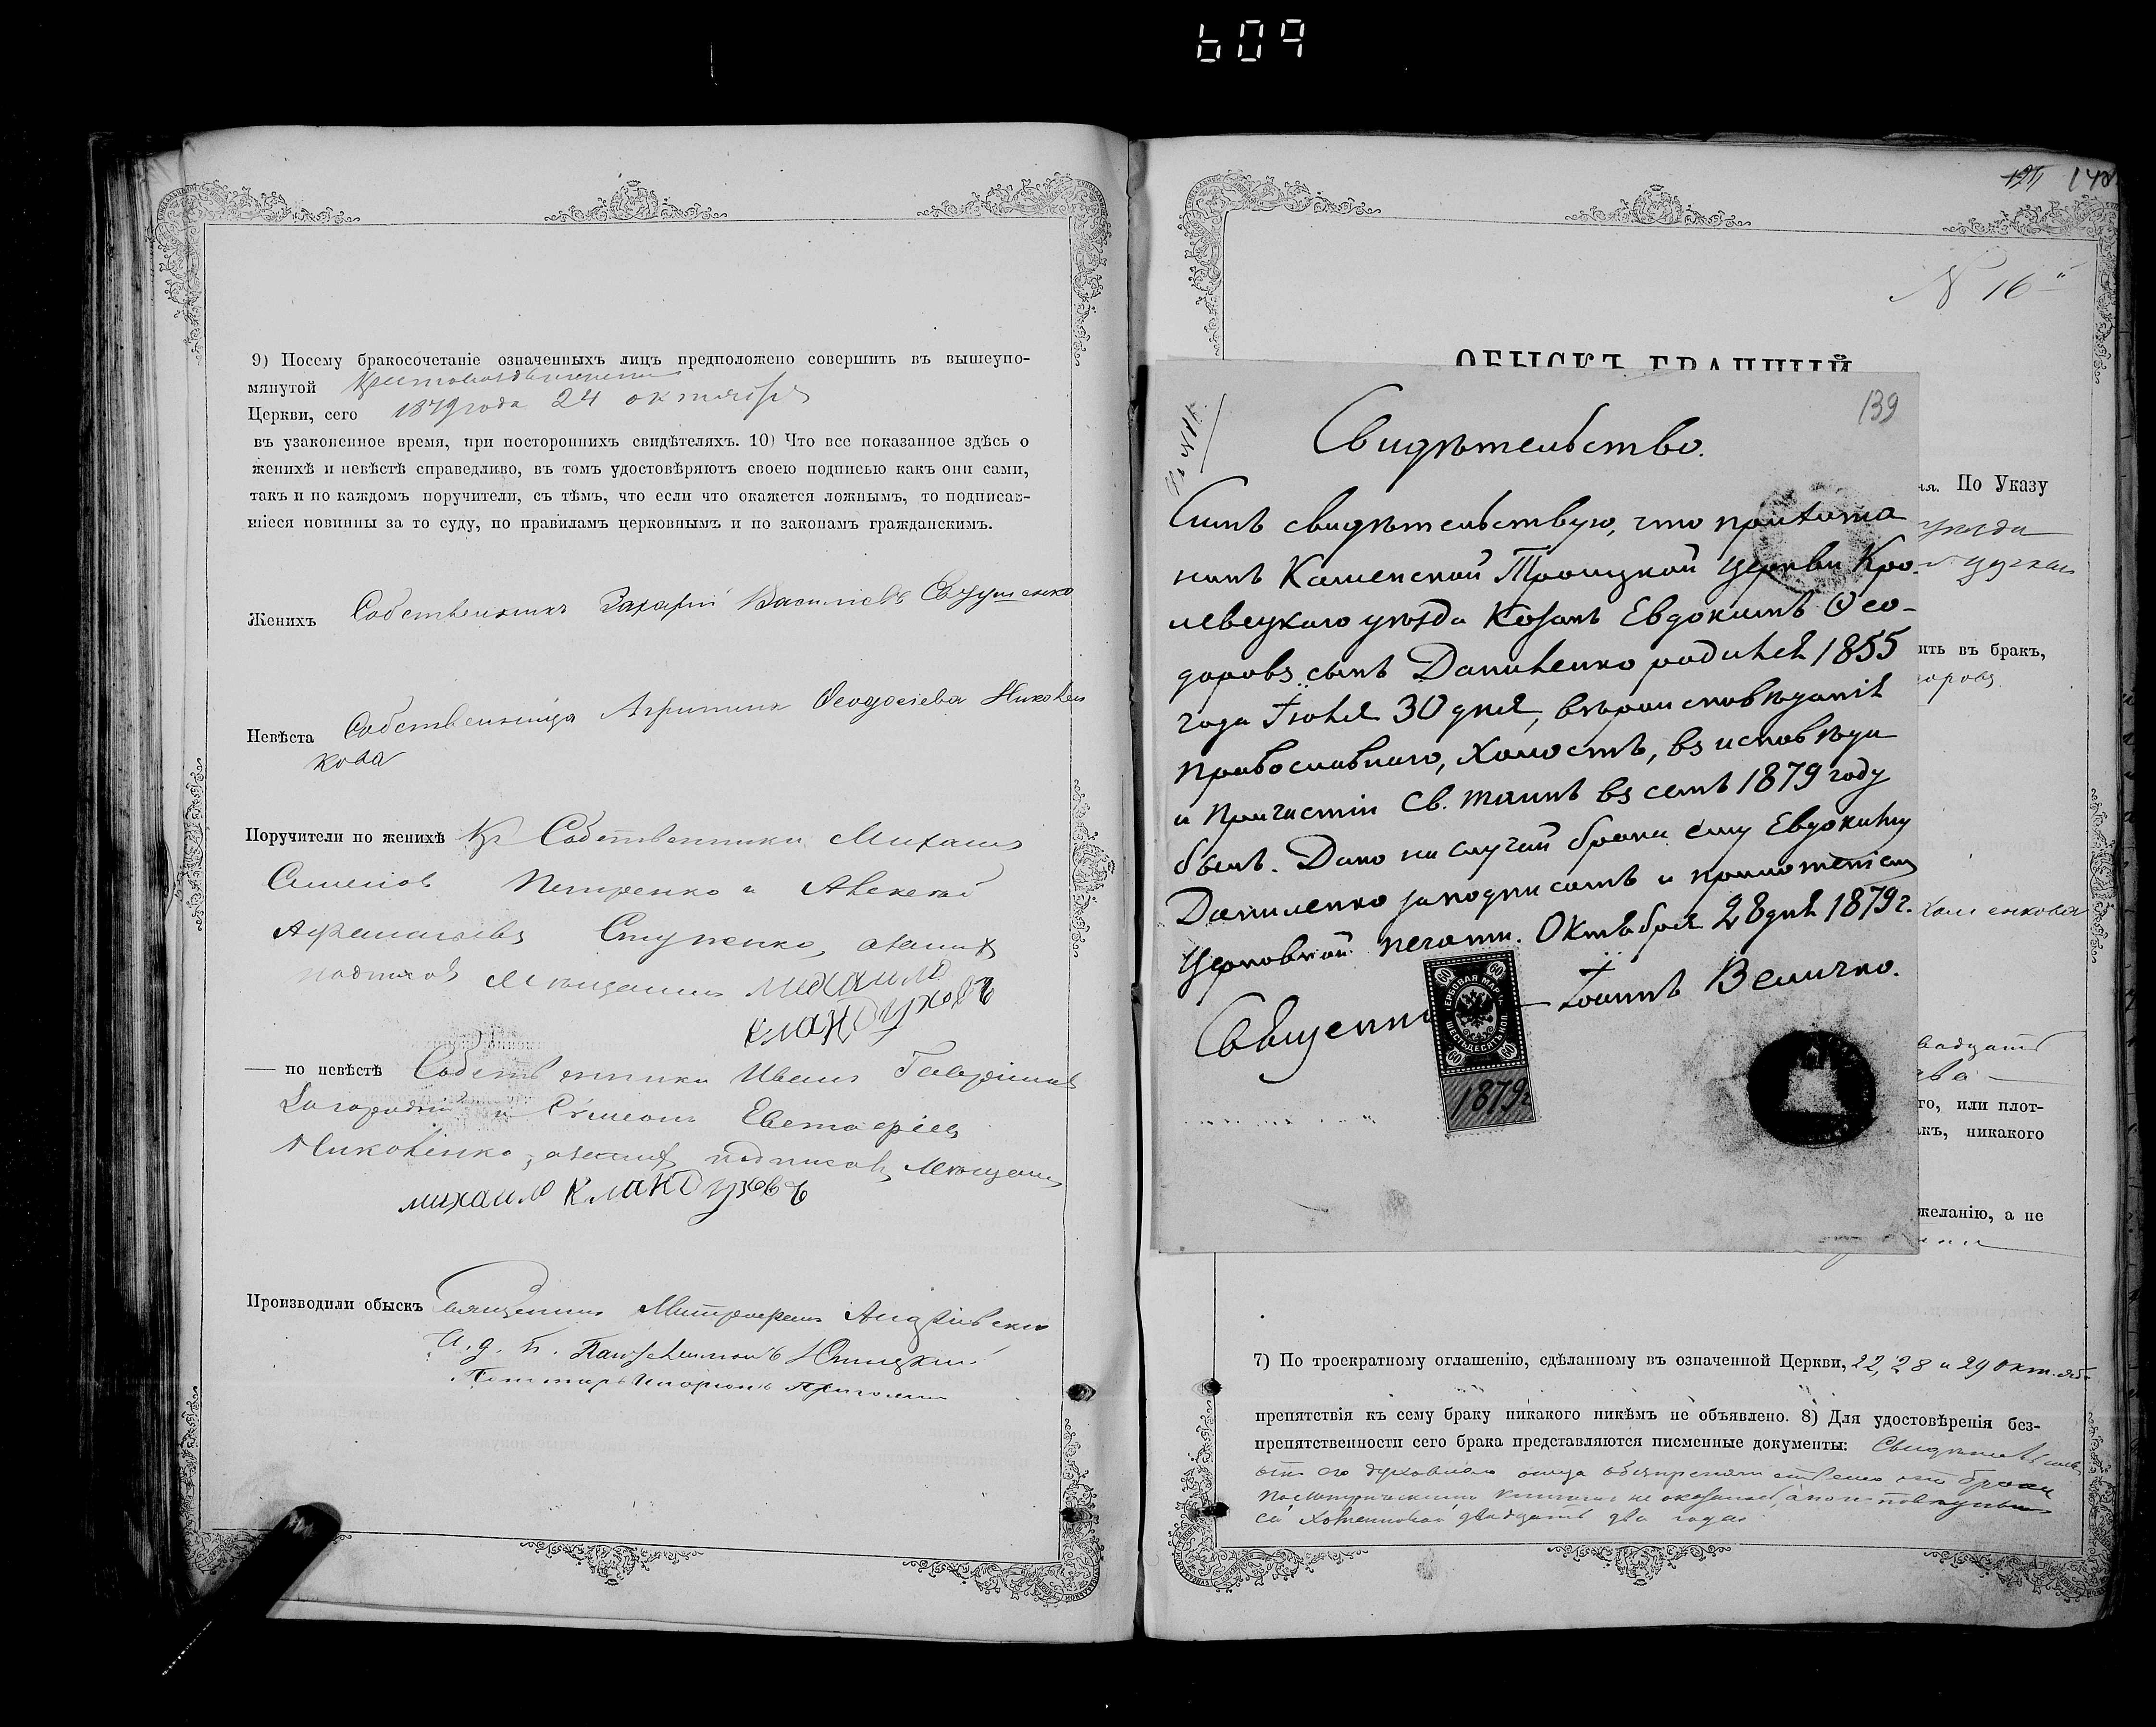 609
9) Посему бракосочетаніе означенныхъ лицъ предположено совершить въ вышеупо-
мянутой Крестовоздвиженской
Церкви, сего 1879 года 24 октября
въ узаконенное время, при постороннихъ свидѣтеляхъ. 10) Что все показанное здѣсь о
женихѣ и невѣстѣ справедливо, въ томъ удостовѣряютъ своею подписью какъ они сами,
такъ и по каждомъ поручители, съ тѣмъ, что если что окажется ложнымъ, то подписав-
шіеся повинны за то суду, по правиламъ церковнымъ и по законамъ гражданскимъ.
Женихъ Собственникъ Захарій Василіевъ
Невѣста Собственница Агрипина Ѳеодосіева Никовен
кова
Поручители по женихѣ Собственники Михаилъ
Симеоновъ Петренко и Алексѣй
Афанасіевъ Ступенко, а за нихъ
подписалъ Мѣщанинъ михаило
кландуховъ
— по невѣстѣ Собственники Иванъ Гавріиловъ
Загородній и Симеонъ Евстафіевъ
Никовенко, а за нихъ подписалъ Мѣщанинъ
михаило кландуховъ
Производили обыскъ Священникъ Митрофанъ
И. д. п. Пантелеимонъ Юницкій
Пономарь
127 140
N 16й
ОБЫСКЪ БРАЧНЫЙ
139
Свидѣтельство.
Симъ свидѣтельствую, что прихожа
нинъ Каменской Троицкой церкви Кро-
левецкаго уѣзда Козакъ Евдокимъ Ѳео-
доровъ сынъ Даниленко родился 1855
года Іюля 30 дня, вѣроисповѣданія
православнаго, холостъ, въ исповѣди
и причастіи Св. таинъ въ семъ 1879 году
былъ. Дано на случай брака ему Евдокиму
Даниленко за подписомъ и приложеніемъ
церковной печати. Октября 28 дня 1879 г.
Священникъ Іоаннъ Величко.
ГЕРБОВАЯ МАРКА
ШЕСТЬДЕСЯТЪ КОП.
60 60
60 60
1879 г
ія. По Указу
уѣзда
ить въ брак,
доровъ
Хоменкова
вадцать
два
го, или плот-
къ, никакого
желанію, а не
7) По троекратному оглашенію, сдѣланному въ означенной Церкви, 22, 28 и 29 Октября
препятствія къ сему браку никакого никѣмъ не объявлено. 8) Для удостовѣренія без-
препятственности сего брака представляются писменные документы: Свидѣтельство
отъ его духовнаго отца
по метрическимъ книгамъ не оказалось, а по исповѣднымъ
ей двадцать два года.